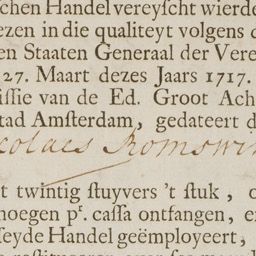 schen Handel vereyscht wierde
ezen in die qualiteyt volgens d
en Staaten Generaal der Vere
27. Maart dezes Jaars 1717.
issie van de Ed. Groot Ach
tad Amsterdam, gedateert d
colaes Romswin
t twintig stuyvers 't stuk, o
noegen pr. cassa ontfangen, e
seyde Handel geëmployeert,